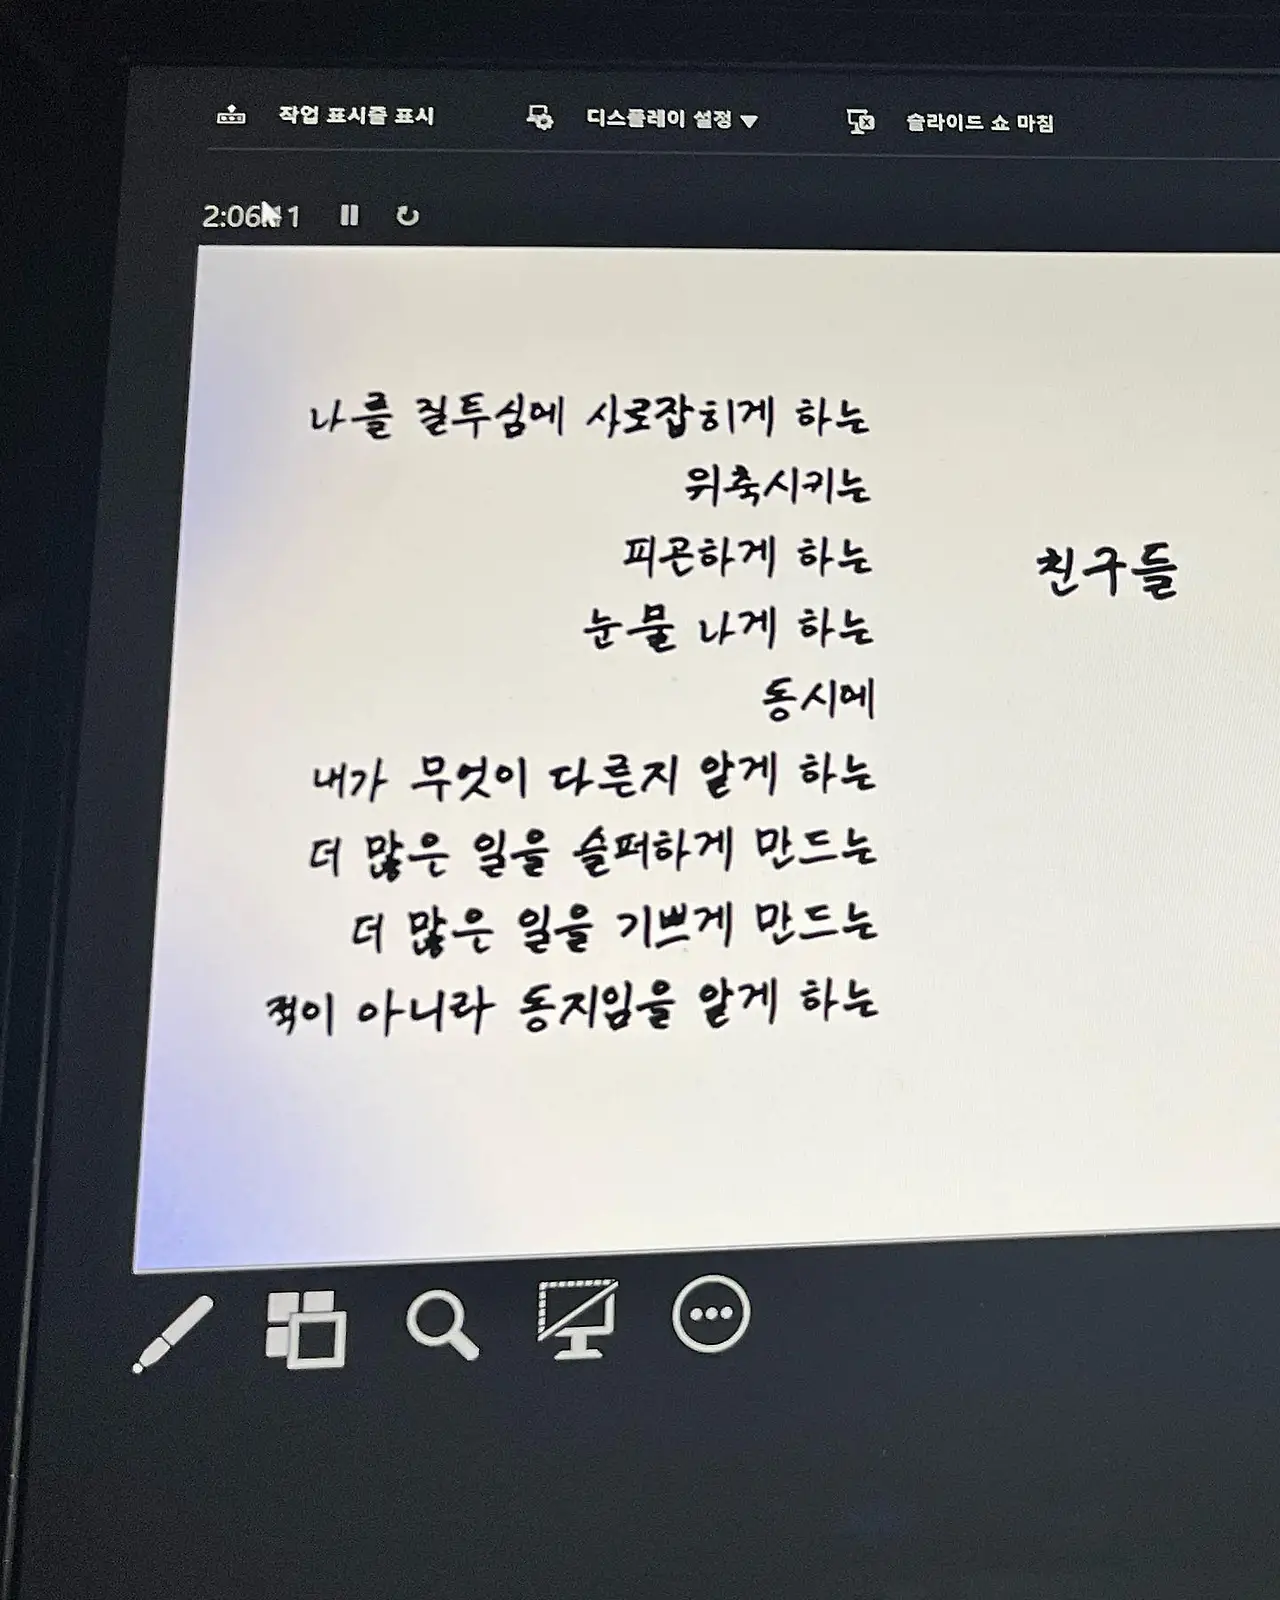 작업 표시줄 표시
디스플레이 설정
슬라이드 쇼 마침
나를 질투심에 사로잡히게 하는
위축시키는
피곤하게 하는
눈물 나게 하는
동시에
내가 무엇이 다른지 알게 하는
더 많은 일을 슬퍼하게 만드는
더 많은 일을 기쁘게 만드는
적이 아니라 동지임을 알게 하는
친구들